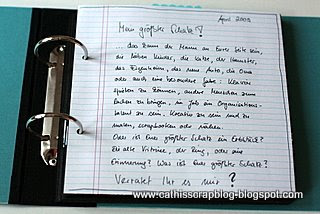 April 2008
Mein größter Schatz?
... das kann der Mann an Eurer Seite sein,
die süßen Kinder, die Katze, der Hamster,
das Eigenheim, das neue Auto, die Oma
oder auch eine besondere Gabe: Klavier
spielen zu können, andere Menschen zum
Lachen zu bringen, im Job ein Organisations-
talent zu sein. Kreativ zu sein und zu
malen, scrapbooken oder nähen.
Oder ist Euer größter Schatz ein Erbstück?
Die alte Vitrine, der Ring, oder eine
Erinnerung? Was ist Euer größter Schatz?
Verratet Ihr es mir?
www.cathisscrapblog-blogspot.com